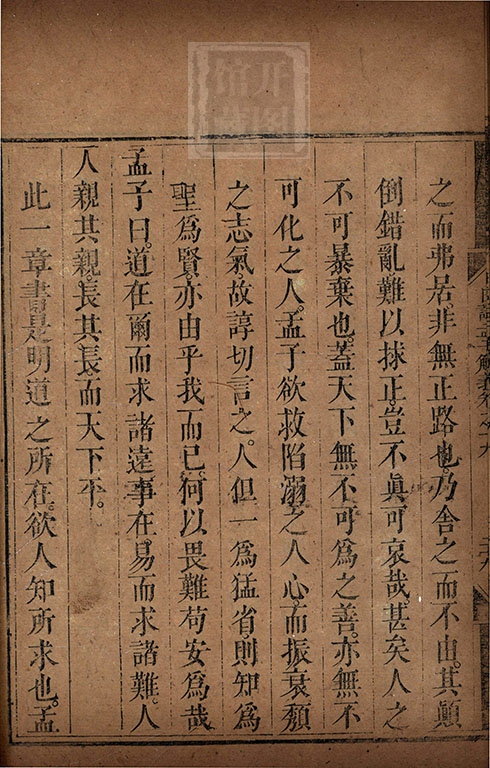 之而弗居。非無正路也。乃舍之而不由。其顛
倒錯亂難以捄正。豈不眞可哀哉。甚矣人之
不可暴棄也。蓋天下無不可爲之善。亦無不
可化之人。孟子欲救陷溺之人心而振衰頽
之志氣。故諄切言之。人但一爲猛省。則知爲
聖爲賢。亦由乎我而已。何以畏難苟安爲哉
孟子曰。道在爾而求諸遠。事在易而求諸難。人
人親其親。長其長而天下平。
此一章書是明道之所在。欲人知所求也。孟